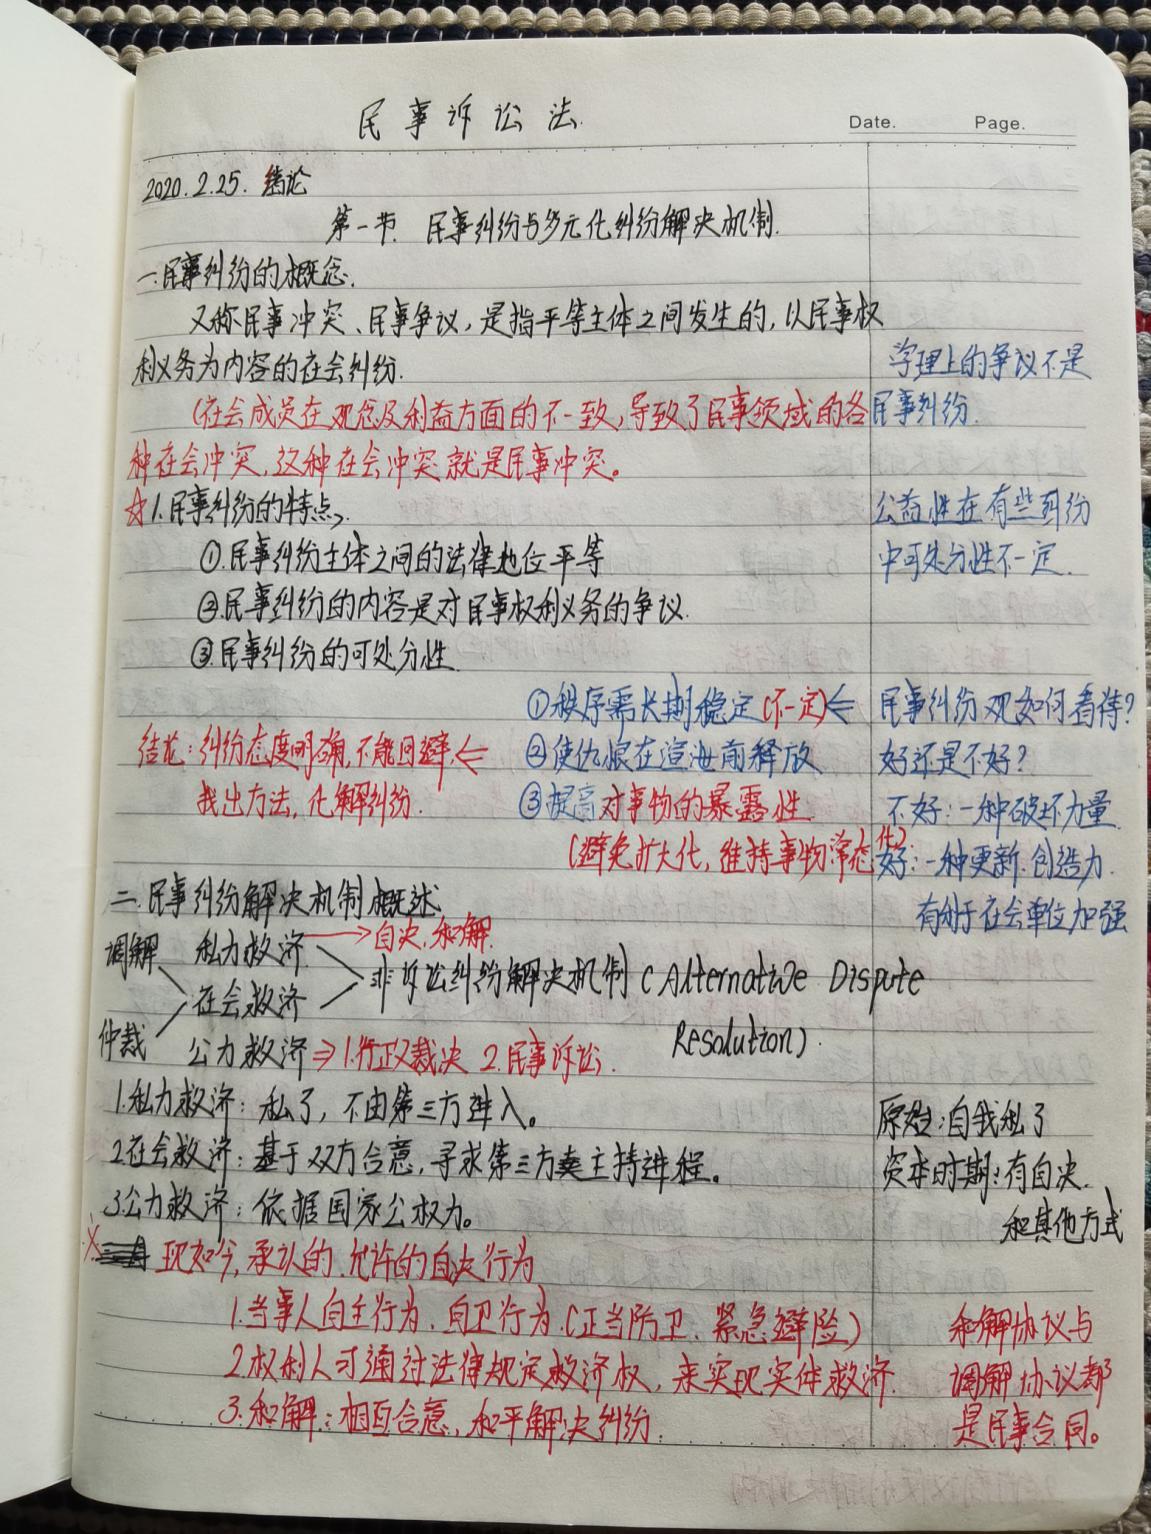 民事诉讼法
Date.
Page.
2020.2.25. 绪论
第一节. 民事纠纷与多元化纠纷解决机制.
一.民事纠纷的概念.
又称民事冲突、民事争议，是指平等主体之间发生的，以民事权
利义务为内容的社会纠纷.
(社会成员在观念及利益方面的不一致，导致了民事领域的各
种社会冲突，这种社会冲突就是民事冲突。
学理上的争议不是
民事纠纷.
☆1.民事纠纷的特点
①.民事纠纷主体之间的法律地位平等
②.民事纠纷的内容是对民事权利义务的争议.
③.民事纠纷的可处分性
公益性在有些纠纷
中可处分性不一定.
民事纠纷观如何看待?
好还是不好?
不好:一种破坏力量
好:一种更新.创造力.
有利于社会单位加强
①秩序需长期稳定(不一定)⇐
②使仇恨在渲泄前释放
③提高对事物的暴露性
(避免扩大化，维持事物常态化)
结论:纠纷态度明确，不能回避.⇐
找出方法，化解纠纷.
二.民事纠纷解决机制概述
调解
仲裁
私力救济→自决.和解.
社会救济
非诉讼纠纷解决机制(Alternative Dispute
Resolution).
公力救济⇒1.行政裁决 2.民事诉讼.
1.私力救济:私了，不由第三方进入。
2.社会救济:基于双方合意，寻求第三方来主持进程。
3.公力救济:依据国家公权力。
原始:自我私了
资本时期:有自决.
和其他方式
※ 现如今，承认的.允许的自决行为
1.当事人自主行为.自卫行为.(正当防卫.紧急避险)
2.权利人可通过法律规定救济权，来实现实体救济.
3.和解:相互合意，和平解决纠纷.
和解协议与
调解协议都
是民事合同。